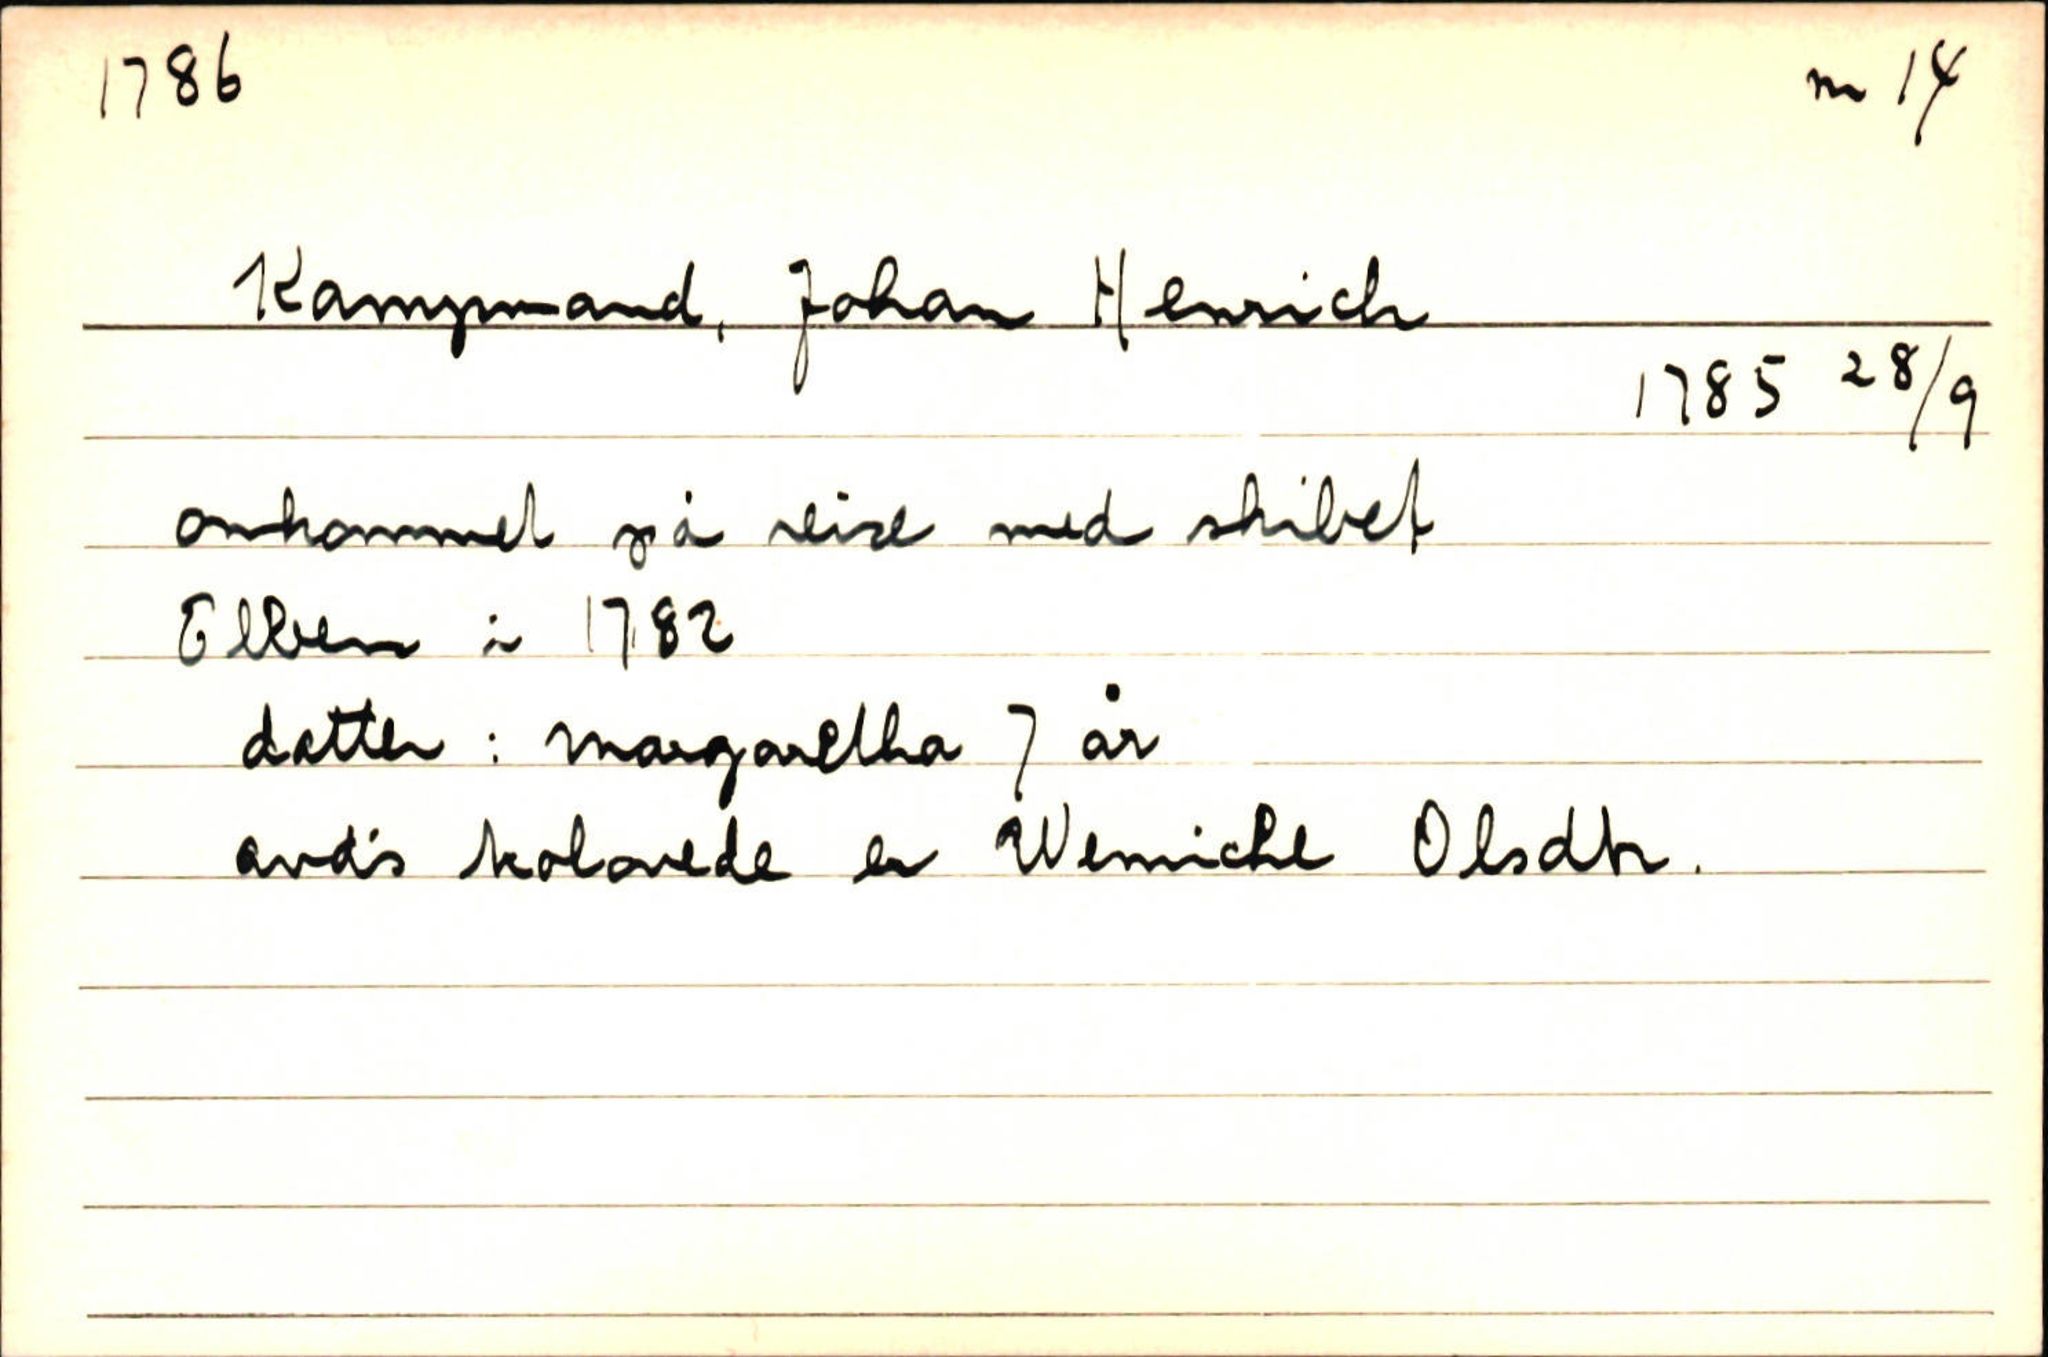 1786 nr 14
Kampmand, Johan Henrich
1785 28/9
omkommet på reise med skibet
Elben i 1782
datter: Margaretha 7 år
avd's trolovede er Weniche Olsdtr.